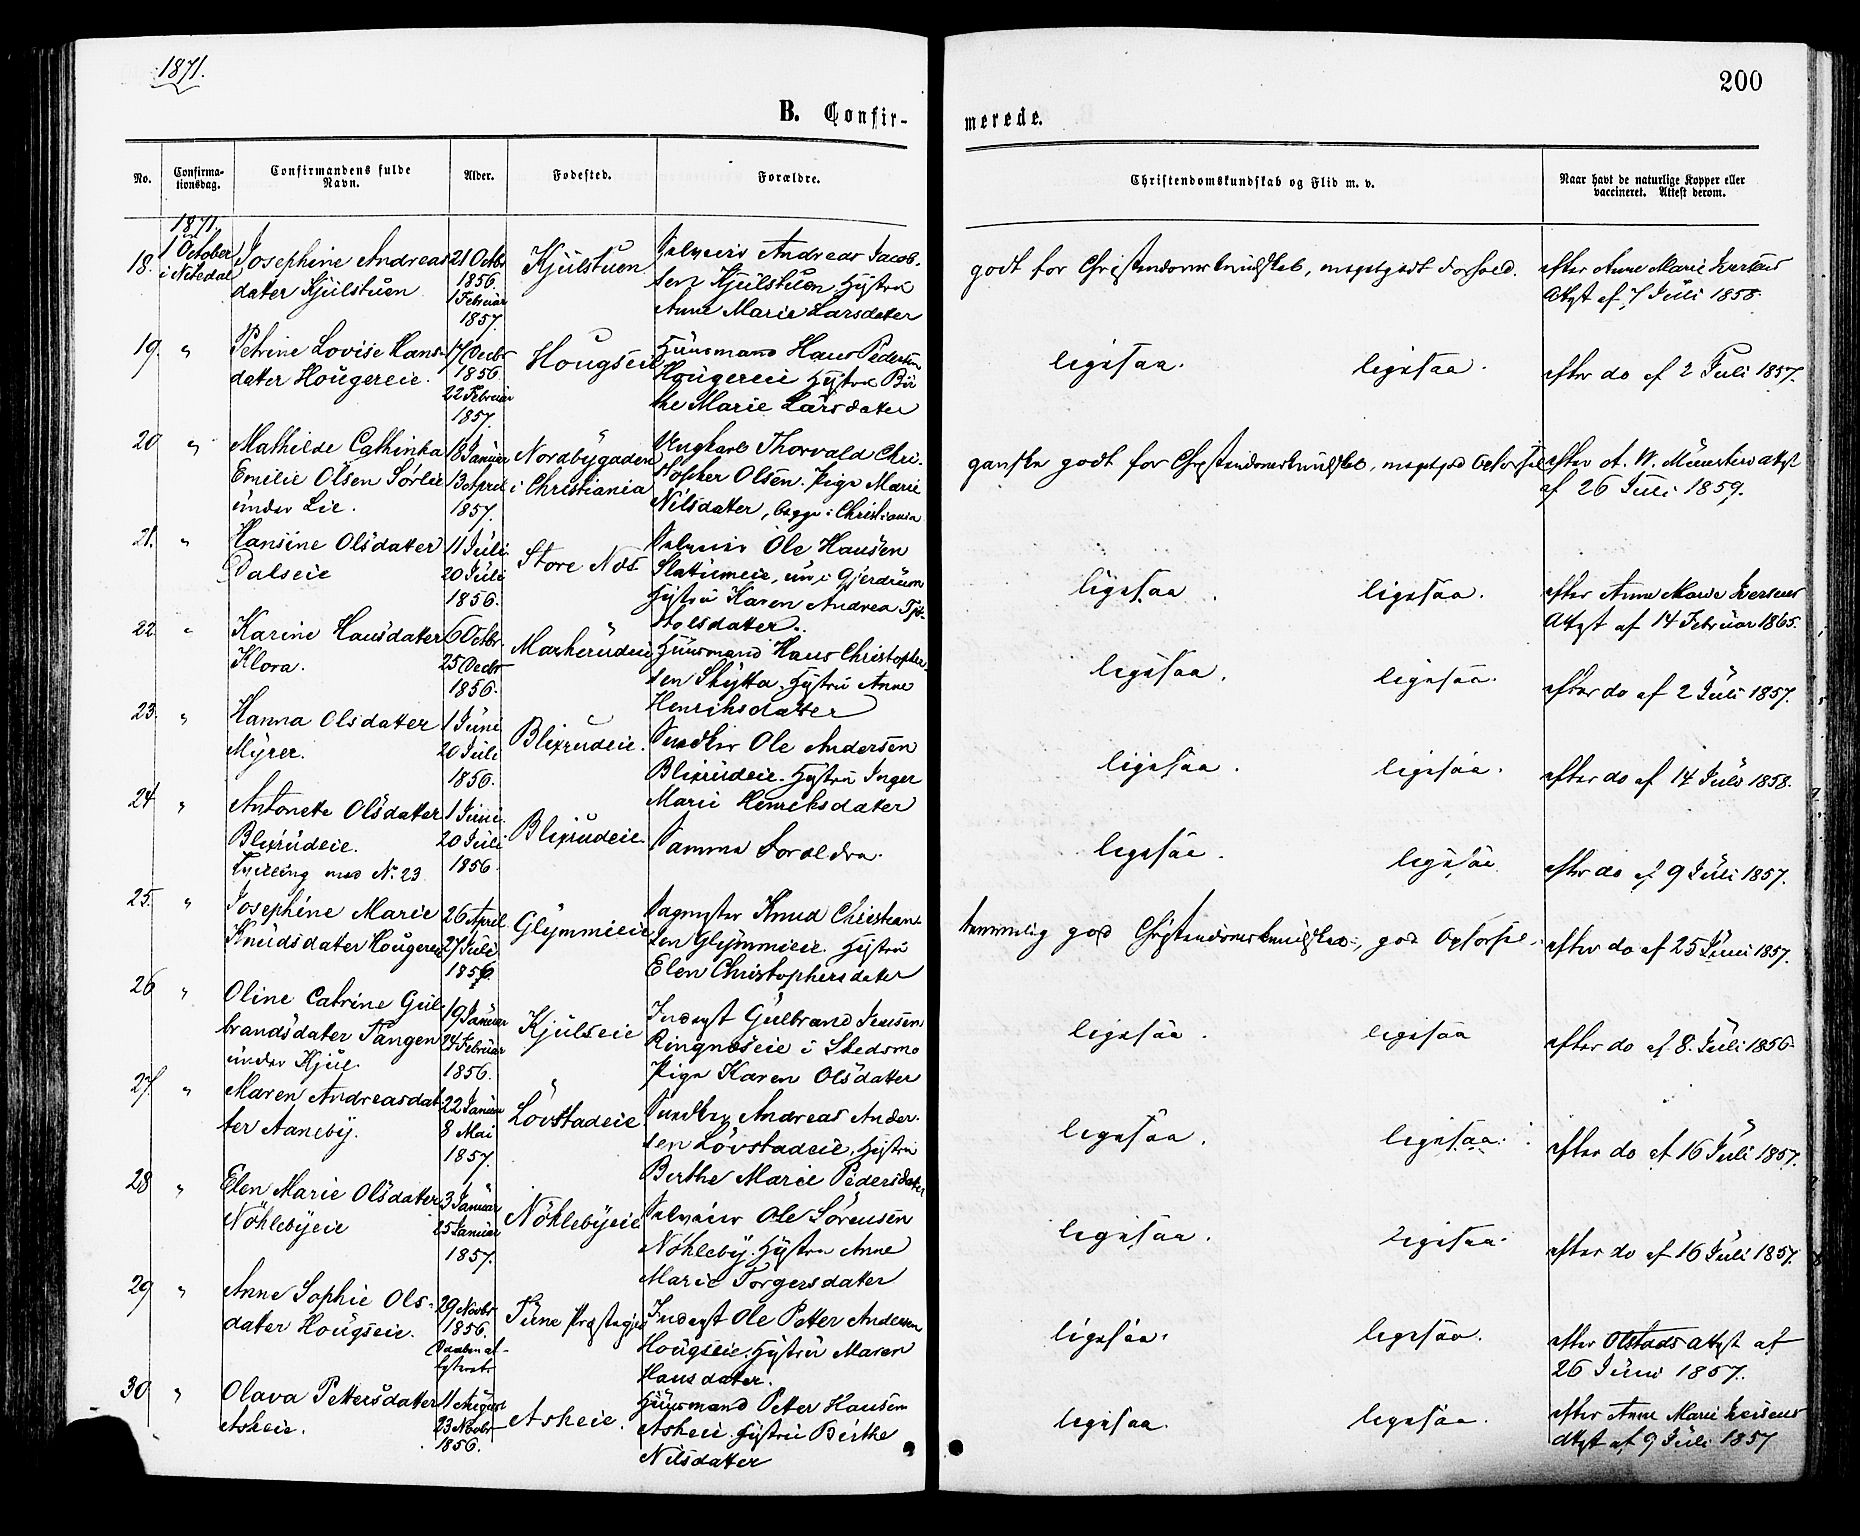 1871.
200
B. Confir-
merede.
No.
Confirma-
tionsdag.
Confirmandens fulde
Navn.
Alder.
Fødested.
Forældre.
Christendomskundskab og Flid m. v.
Naar havt de naturlige Kopper eller
vaccineret. Attest derom.
1871,
18. 1 October Josephine Andreas 21 Octbr Kjülstuen Andreas Jacob-
i Nitedal dater Kjülstuen 1856. sen Kjülstuen. Hustru
1 Februar Anne Marie Larsdater
1857.
godt for Christendomskundskab, meget godt Forhold. efter Anne Marie Iversens
Attest af 7 Juli 1858.
19. " Petrine Lovise Hans- 17 Decbr Hougseie Huusmand Hans Pedersen
dater Hougereie. 1856. Hougereie Hustru Bir
22 Februar the Marie Larsdater
1857.
ligesaa. ligesaa. efter do af 2 Juli 1857.
20 " Mathilde Cathinka 18 Januar Nordbygaden Ungkarl Thorvald Chri-
Emilie Olsen Sørlie 13 April i Christiania stopher Olsen. Pige Marie
under Lie. 1857. Nilsdater, begge i Christiania
ganske godt for Christendomskundskab, meget god Opførsel efter Attest
af 26 Juli 1859.
21. " Hansine Olsdater 11 Juli Store Næs. Selveier Ole Hansen
Dalseie 20 Juli Slattumeie, nu i Gjerdrum
1856. Hustru Karen Andrea
stolsdater.
ligesaa. ligesaa. efter Anne Marie Iversens
Attest af 14 Februar 1865.
22. " Karine Hansdater 6 Octbr Maxherudeie Huusmand Hans Christopher-
Klora. 25 Decbr sen Skytta. Hustru Anne
1856. Henriksdatter
ligesaa. ligesaa. efter do af 2 Juli 1857.
23. " Hanna Olsdatter 1 Juni Blixrudeie. Ole Andersen
Myrer. 20 Juli Blixrudeie. Hustru Inger
1856. Marie Henriksdater
ligesaa. ligesaa. efter do af 14 Juli 1858.
24 " Antonette Olsdatter 1 Juni Blixrudeie. Samme Forældre.
Blixrudeie. 20 Juli
Tvilling med No 23 1856
ligesaa. ligesaa efter do af 9 Juli 1857.
25. " Josephine Marie 26 April Glymmieie Knud Christian-
Knudsdater Hougereie 27 Juli sen Glymmieie. Hustru
1856 Elen Christophersdater
temmelig god Christendomskundskab, god Opførsel. efter do af 25 Juni 1857.
26 " Oline Catrine Gul- 19 Januar Kjulseie Inderst Gulbrand Jensen
brandsdater Tangen 24 Februar Ringnæseie i Skedsmo
under Kjul. 1856. Pige Karen Olsdatter
ligesaa. ligesaa efter do af 8. Juli 1856.
27. " Maren Andreasdat- 22 Januar Løvstadeie Andreas Ander-
ter Aaneby. 8 Mai sen Løvstadeie, Hustru
1857. Berthe Marie Pedersdater
ligesaa. ligesaa. efter do af 16 Juli 1857.
28 " Elen Marie Olsdatter 3 Januar Nøhlebyeie Selveier Ole Sørensen
Nøhlebyeie 25 Januar Nøhleby. Hustru Anne
1857. Marie Torgersdater
ligesaa. ligesaa. efter do af 16 Juli 1857.
29 " Anne Sophie Ols- 29 Novbr Tune Præstegjeld Inderst Ole Petter Andersen
dater Hougseie. 1856. Hougseie. Hustru Maren
Daaben at- Hansdater.
testeret.
ligesaa. ligesaa. efter Olstads Attest af
26 Juni 1857.
30 " Olava Pettersdatter 11 August Askeie. Huusmand Petter Hansen
Askeie. 23 Novbr Askeie. Hustru Birthe
1856. Nilsdatter
ligesaa. ligesaa. efter Anne Marie Iversens
Attest af 9 Juli 1857